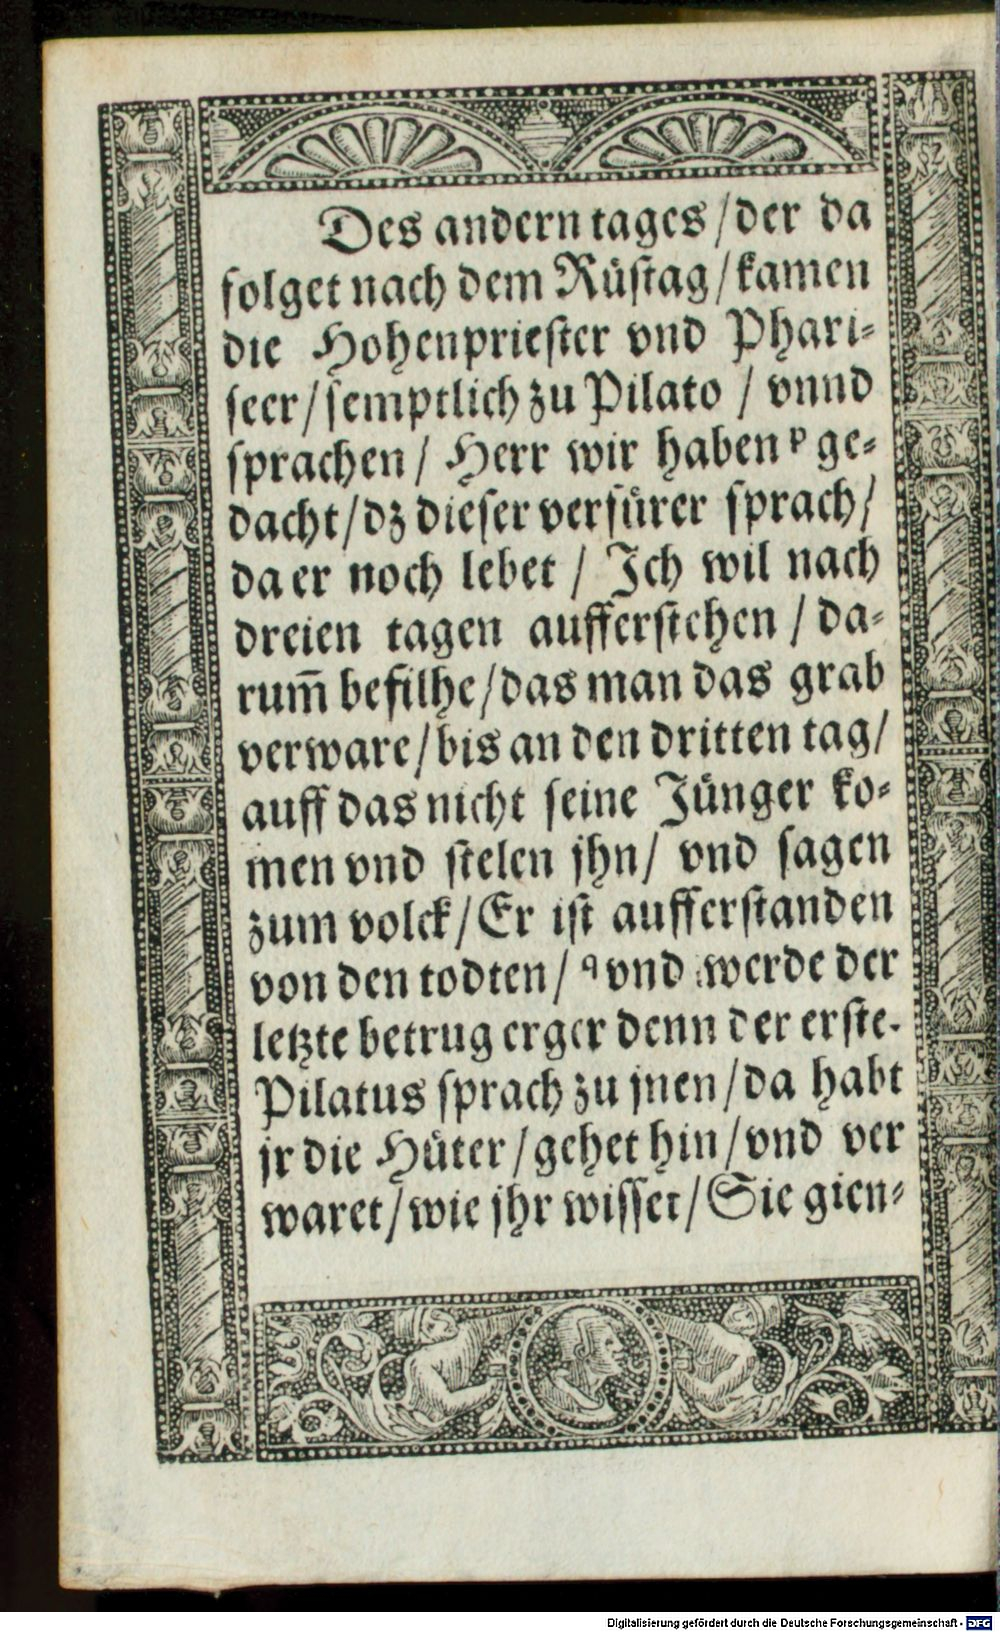 Des andern tages / der da
folget nach dem Rüstag / kamen
die Hohenpriester vnd Phari⸗
seer / semptlich zu Pilato / vnnd
sprachen / Herr wir haben ᵖ ge⸗
dacht / dz dieser verfürer sprach /
da er noch lebet / Ich wil nach
dreien tagen aufferstehen / da⸗
rum̄ befilhe / das man das grab
verware / bis an den dritten tag /
auff das nicht seine Jünger ko⸗
men vnd stelen jhn / vnd sagen
zum volck / Er ist aufferstanden
von den todten / ᑫ vnd werde der
letzte betrug erger denn der erste.
Pilatus sprach zu jnen / da habt
jr die Hüter / gehet hin / vnd ver
waret / wie jhr wisset / Sie gien⸗
Digitalisierung gefördert durch die Deutsche Forschungsgemeinschaft - DFG